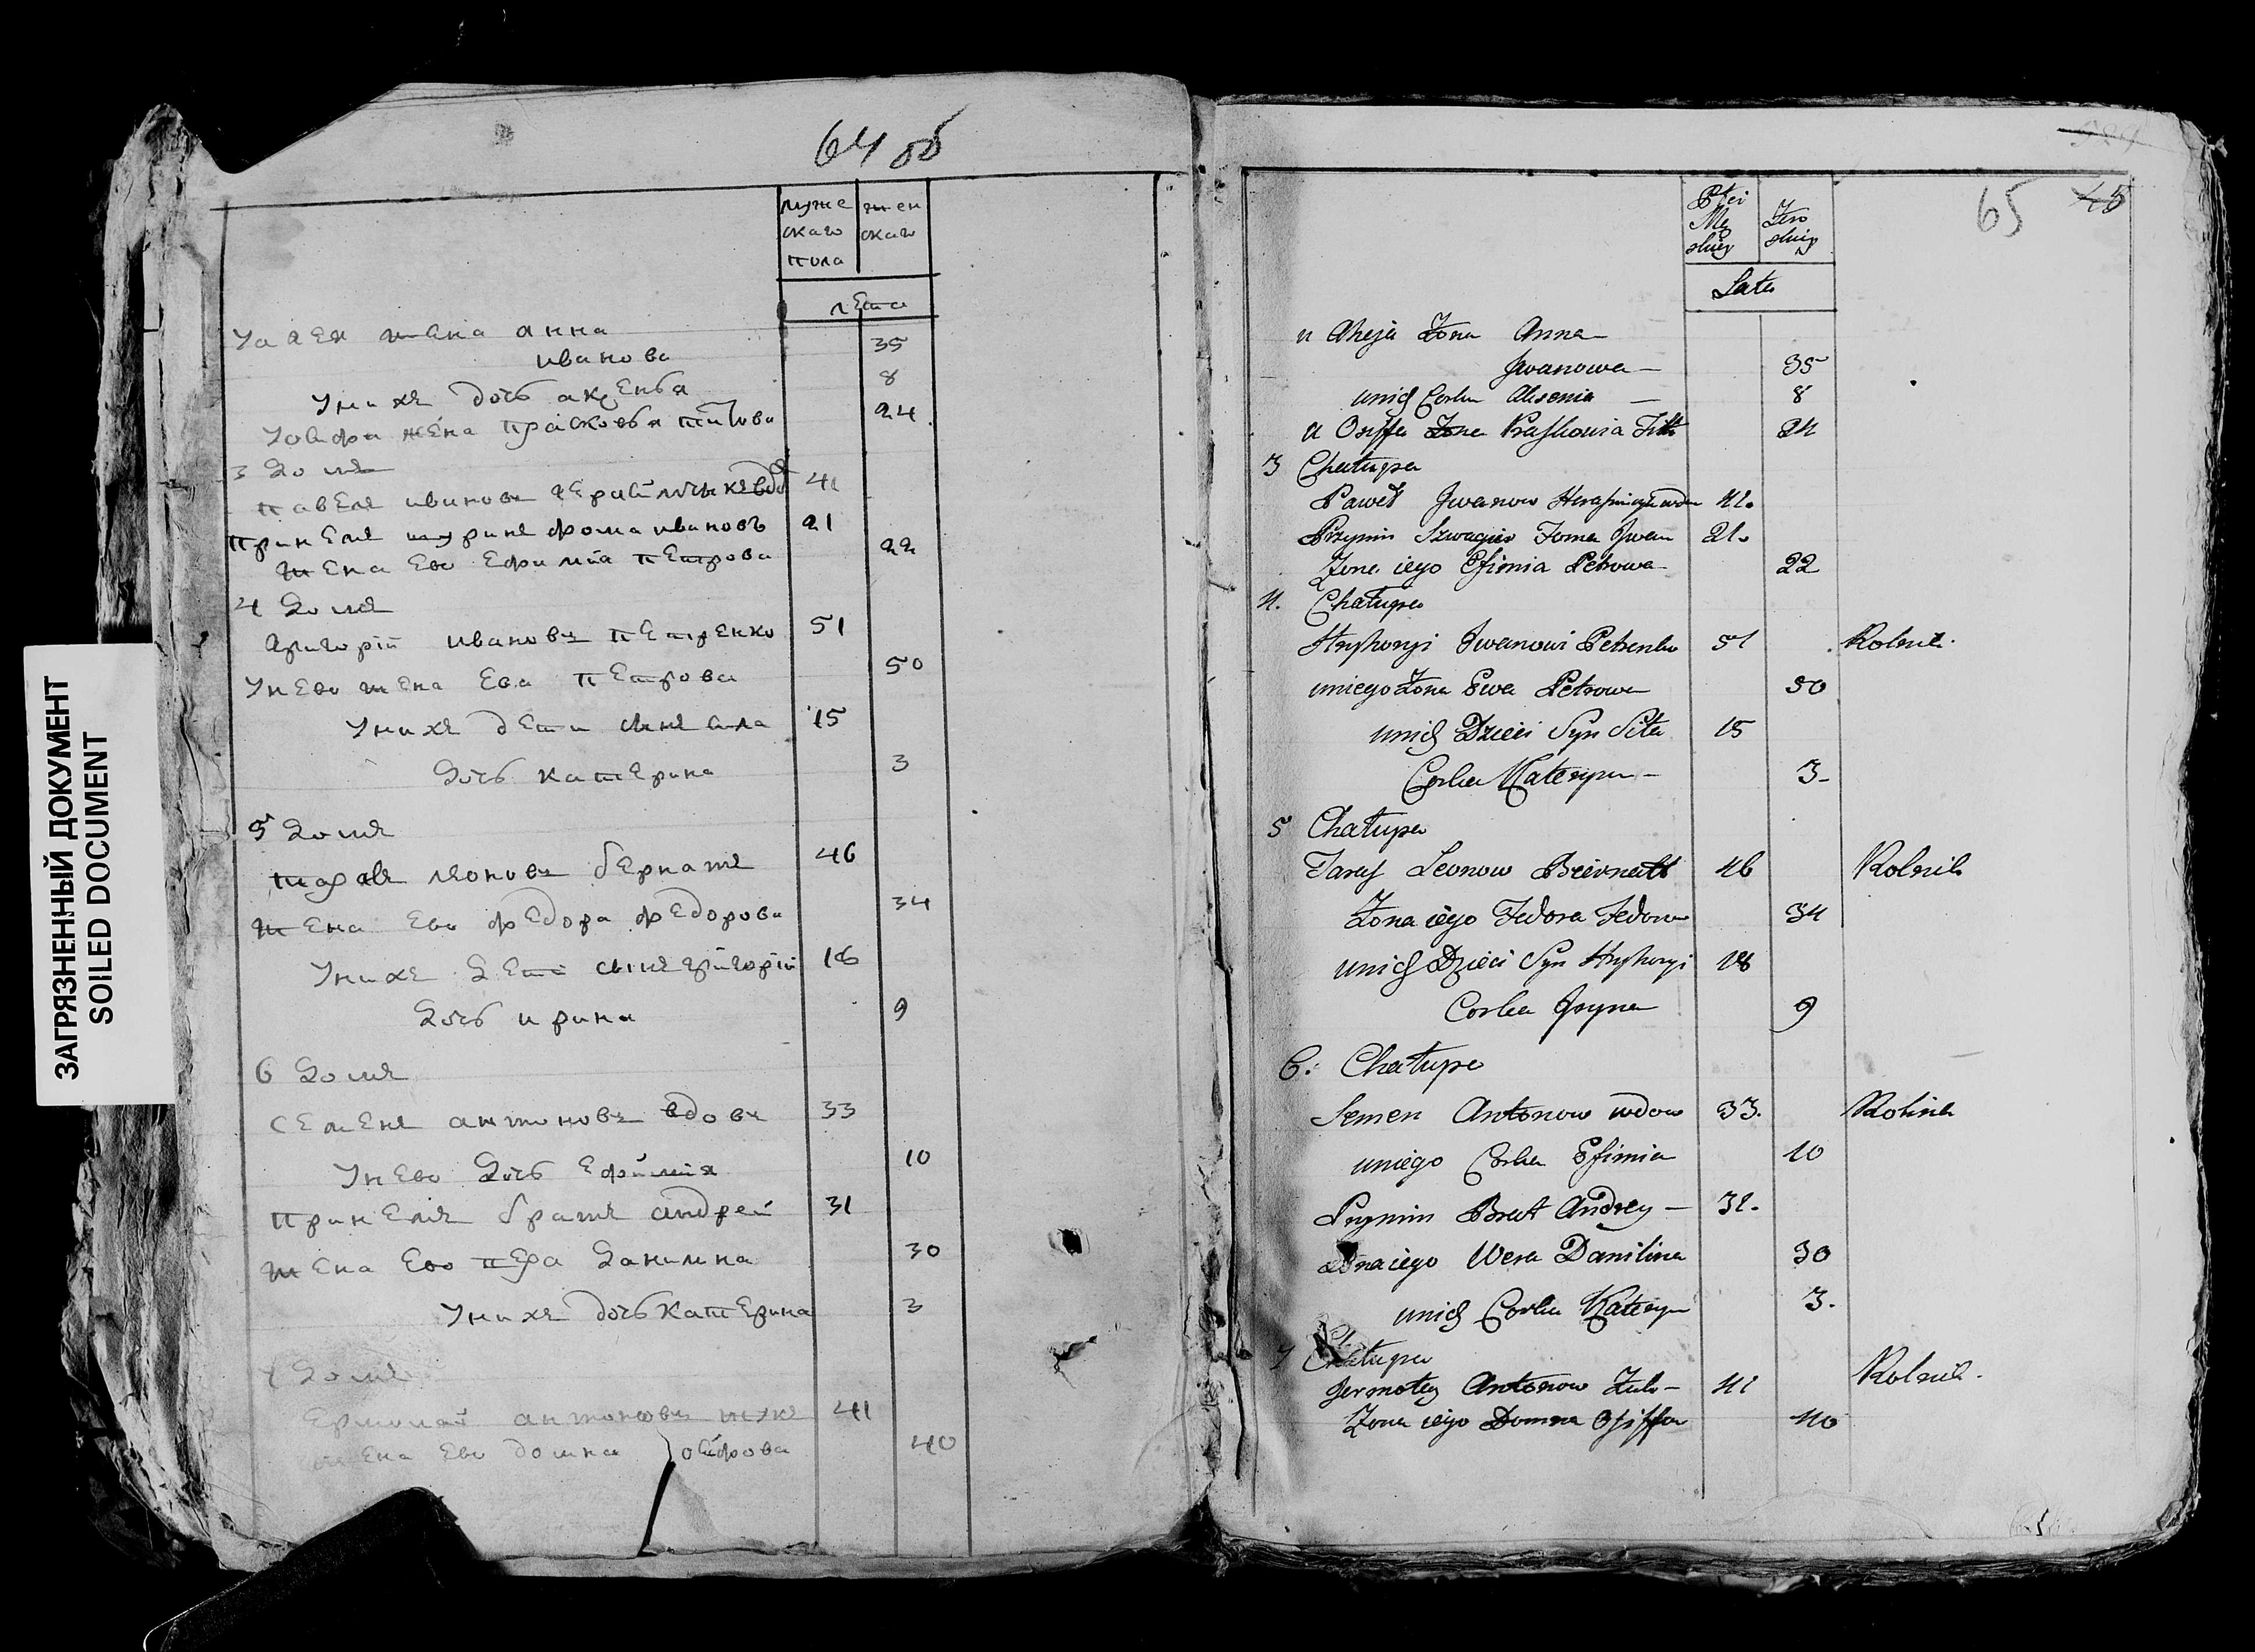 ЗАГРЯЗНЕННЫЙ ДОКУМЕНТ
SOILED DOCUMENT
64 об
муже
скаго
пола
жен
скаго
лета
жена анна
иванова 35
у них дочь аксенья 8
жена прасковья титова 24
3 Домъ
павелъ ивановъ 41
при немъ шуринъ фома ивановъ 21
жена ево ефимия петрова 22
4 Домъ
григорій ивановъ петренко 51
у нево жена ева петрова 50
у нихъ дети сынъ сила 15
дочь катерина 3
5 Домъ
тарасъ леоновъ бернатъ 46
жена ево федора федорова 34
у нихъ дети сынъ григорій 18
дочь ирина 9
6 Домъ
семенъ антоновъ вдовъ 33
у нево дочь ефимия 10
при немъ братъ андрей 31
жена ево Данилина 30
у нихъ дочь катерина 3
7 Домъ
ермолай антоновъ жукъ 41
жена ево домна 40
65 45
Płci
Mę
skiey
Żeń
skiey
Lata
Żona Anna
Jwanowa 35
unich Corka Aksenia 8
u Osiffa Żona Praskowia Titt 24
3 Chałupa
Paweł Jwanow 41.
Przynim Szwagier Foma Jwan 21.
Żona iego Efimia Petrowa 22
4. Chałupa
Hryhoryi Jwanowi Petrenko 51 Rolnik.
uniego Żona Ewa Petrowa 50
unich Dzieci Syn Siła 15
Corka Kateryna 3
5 Chałupa
Taras Leonow Biernatt 46 Rolnik
Żona iego Fedora Fedorow 34
unich Dzieci Syn Hryhoryi 18
Corka Jryna 9
6. Chałupa
Semen Antonow wdow 33. Rolnik
uniego Corka Efimia 10
Prynim Brat Andrey 31.
Żona iego Wera Daniłina 30
unich Corka Kateryn 3.
7 Chałupa
Jermołay Antonow Żuk 41 Rolnik.
Żona iego Domna Osiffa 40